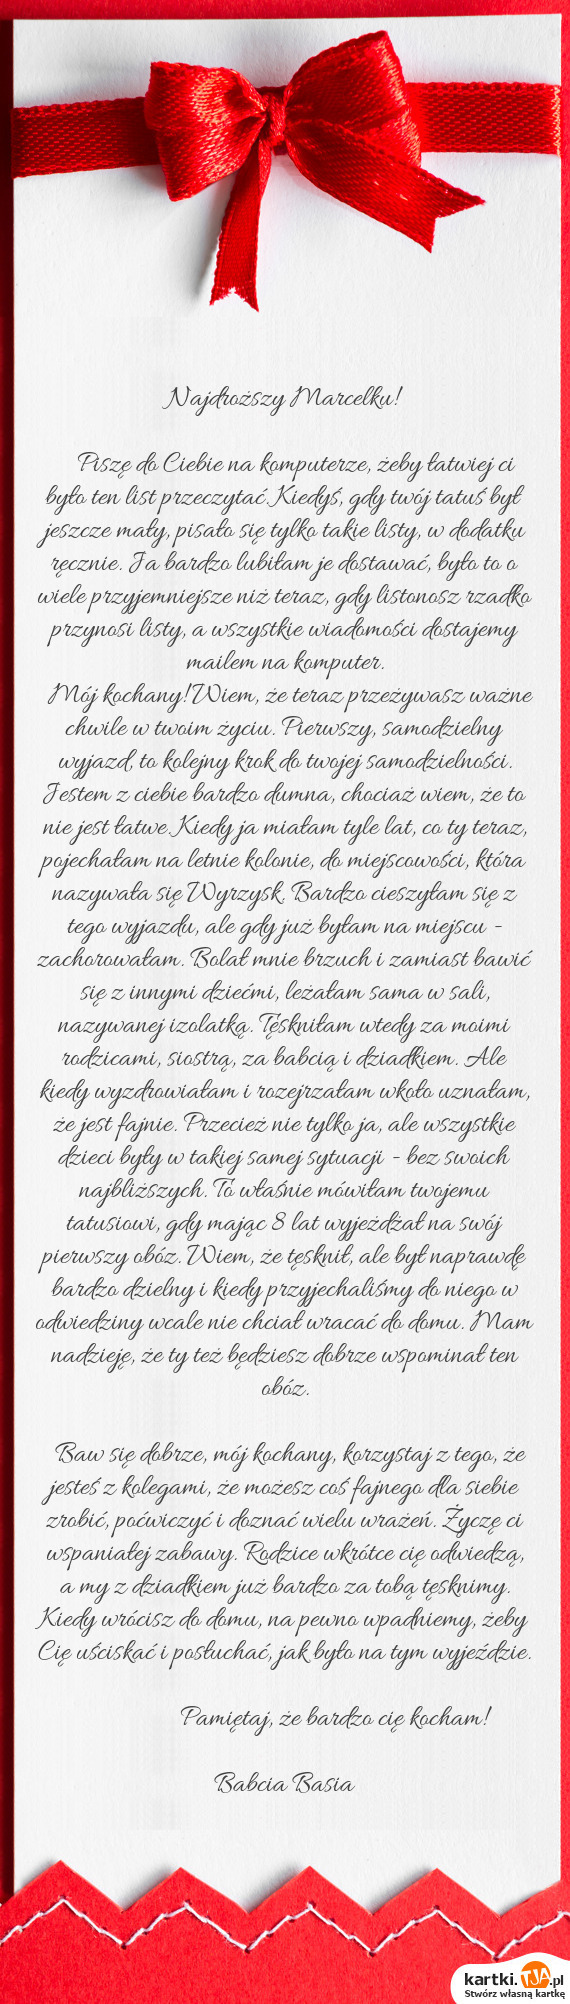 Najdroższy Marcelku!
Piszę do Ciebie na komputerze, żeby łatwiej ci
było ten list przeczytać.Kiedyś, gdy twój tatuś był
jeszcze mały, pisało się tylko takie listy, w dodatku
ręcznie. Ja bardzo lubiłam je dostawać, było to o
wiele przyjemniejsze niż teraz, gdy listonosz rzadko
przynosi listy, a wszystkie wiadomości dostajemy
mailem na komputer.
Mój kochany!Wiem, że teraz przeżywasz ważne
chwile w twoim życiu. Pierwszy, samodzielny
wyjazd, to kolejny krok do twojej samodzielności.
Jestem z ciebie bardzo dumna, chociaż wiem, że to
nie jest łatwe.Kiedy ja miałam tyle lat, co ty teraz,
pojechałam na letnie kolonie, do miejscowości, która
nazywała się Wyrzysk. Bardzo cieszyłam się z
tego wyjazdu, ale gdy już byłam na miejscu -
zachorowałam. Bolał mnie brzuch i zamiast bawić
się z innymi dziećmi, leżałam sama w sali,
nazywanej izolatką. Tęskniłam wtedy za moimi
rodzicami, siostrą, za babcią i dziadkiem. Ale
kiedy wyzdrowiałam i rozejrzałam wkoło uznałam,
że jest fajnie. Przecież nie tylko ja, ale wszystkie
dzieci były w takiej samej sytuacji - bez swoich
najbliższych. To właśnie mówiłam twojemu
tatusiowi, gdy mając 8 lat wyjeżdżał na swój
pierwszy obóz. Wiem, że tęsknił, ale był naprawdę
bardzo dzielny i kiedy przyjechaliśmy do niego w
odwiedziny wcale nie chciał wracać do domu. Mam
nadzieję, że ty też będziesz dobrze wspominał ten
obóz.
Baw się dobrze, mój kochany, korzystaj z tego, że
jesteś z kolegami, że możesz coś fajnego dla siebie
zrobić, poćwiczyć i doznać wielu wrażeń. Życzę ci
wspaniałej zabawy. Rodzice wkrótce cię odwiedzą,
a my z dziadkiem już bardzo za tobą tęsknimy.
Kiedy wrócisz do domu, na pewno wpadniemy, żeby
Cię uściskać i posłuchać, jak było na tym wyjeździe.
Pamiętaj, że bardzo cię kocham!
Babcia Basia
kartki.TJA.pl
Stwórz własną kartkę